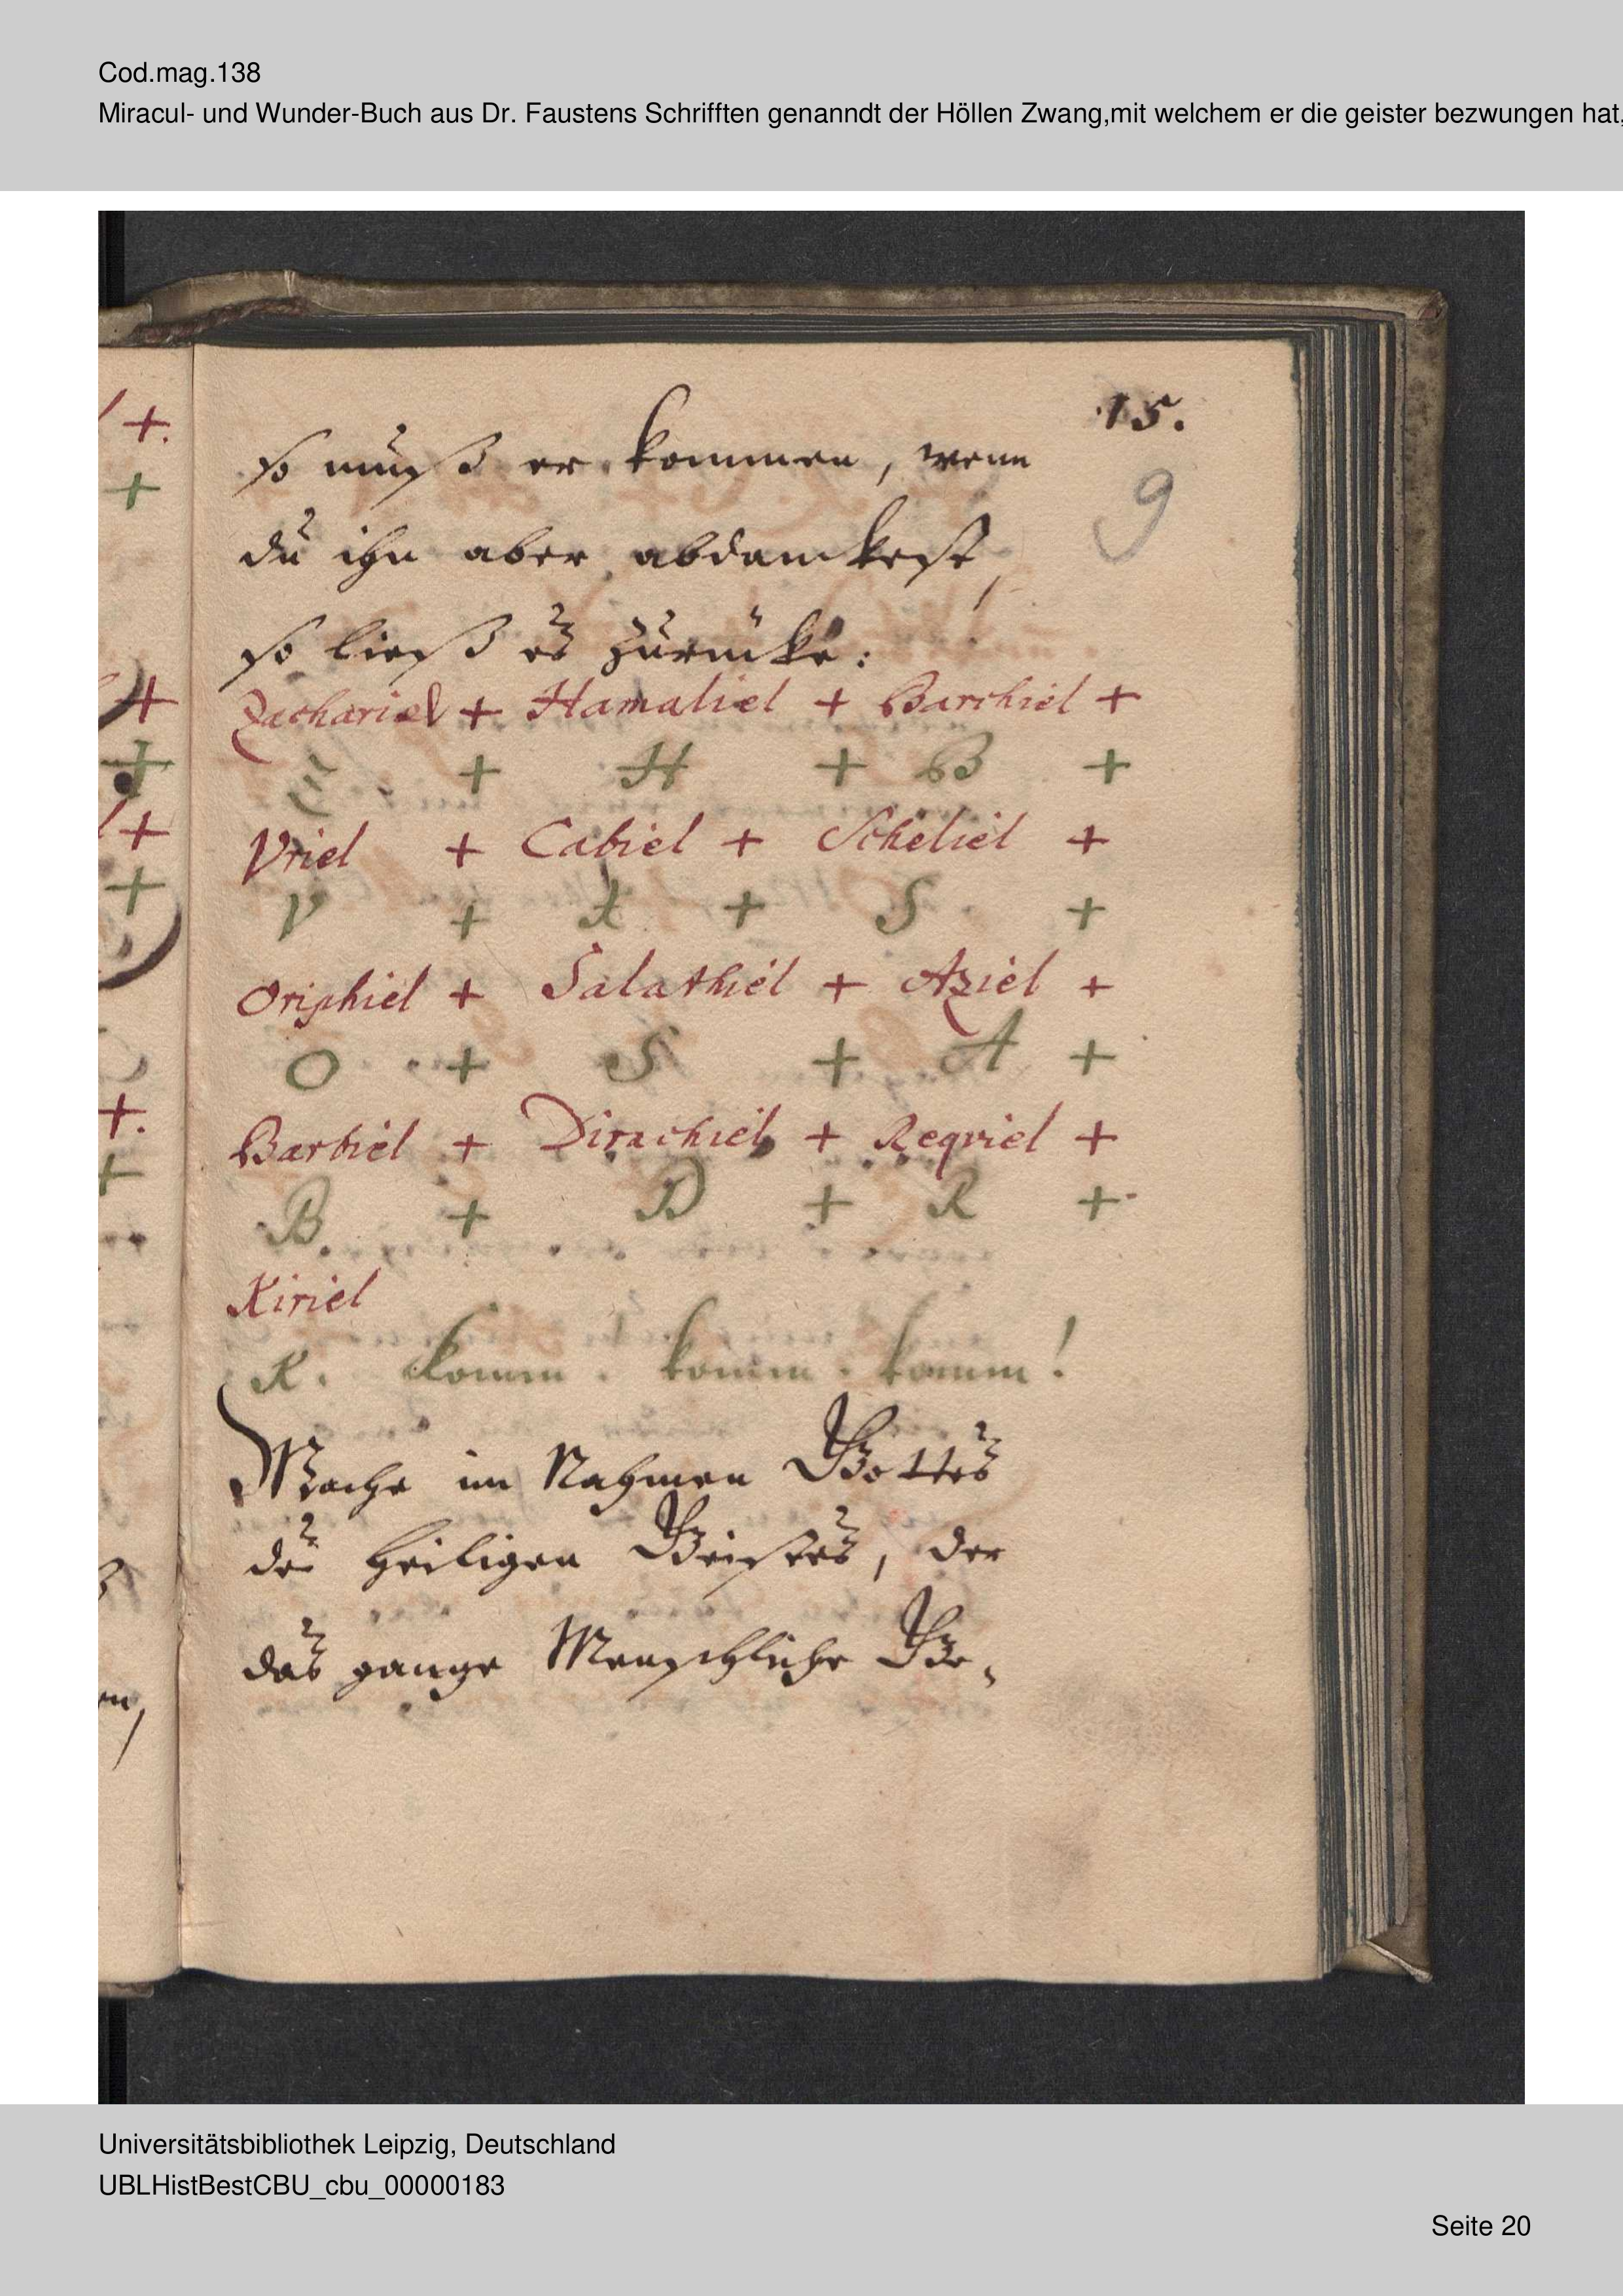 Cod.mag.138
Miracul- und Wunder-Buch aus Dr. Faustens Schrifften genanndt der Höllen Zwang,mit welchem er die geister bezwungen hat,
15.
so muß er kommen, wenn
9
du ihn aber abdanckest,
so ließ es zurücke:
Zachariel + Hamaliel + Barchiel +
+ H + B +
Vriel + Cabiel + Scheliel +
V + X + S +
Oriphiel + Salathiel + Aziel +
O + S + A +
Barbiel + Dirachiel + Reqviel +
B + D + R +
Kiriel
K. Komm. komm. komm!
Mache im Nahmen Gottes
des Heiligen Geistes, der
das gantze Menschliche Ge-
Universitätsbibliothek Leipzig, Deutschland
UBLHistBestCBU_cbu_00000183
Seite 20